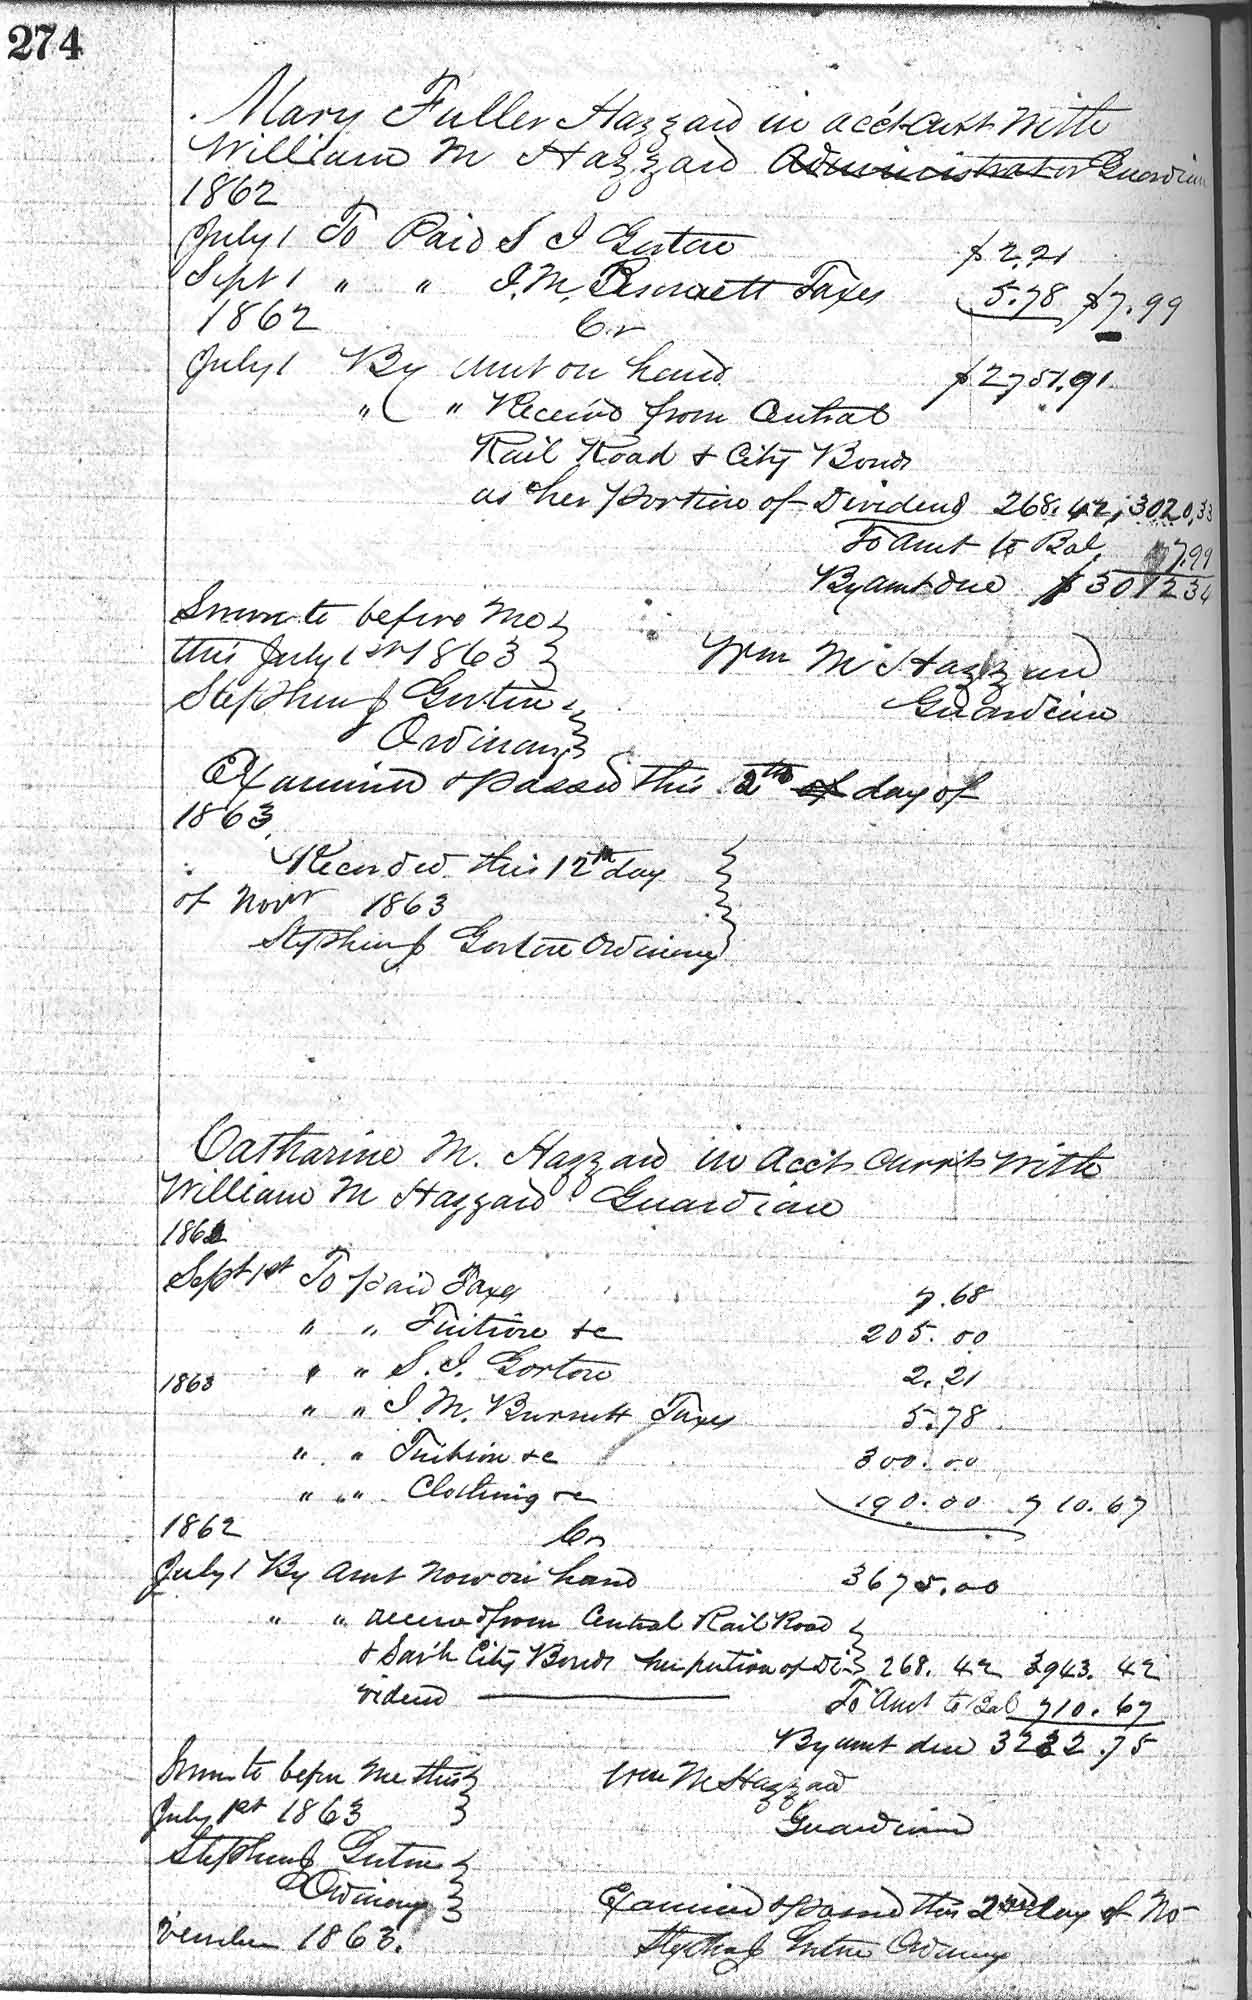 274
Mary Fuller Hazzard in acct Curt with
William M Hazzard Administrator Guardian
1862
July 1 To Paid S J Gorton $2.21
Sept 1 " " J. M. Bennett Taxes 5.78 $7.99
1862 Cr
July 1 By amt on hand $2751.91
" " Received from Central
Rail Road & City Bonds
as her portion of Dividend 268.42, 3020,33
To amt to Bal 7.99
By amt due $301234
Sworn to before me
this July 1st 1863 Wm M Hazzard
Stephen J Gorton Guardian
Ordinary
Examined & passed this 2th of day of
1863
Recorded this 12th day
of Novr 1863
Stephen J Gorton Ordinary
Catharine M. Hazzard in Acct Currt with
William M Hazzard Guardian
1862
Sept 1st To paid Taxes 7.68
" " Tuition &c 205.00
" " S. J. Gorton 2.21
1863
" " J. M. Burnett Taxes 5.78
" " Tuition &c 300.00
" " " Clothing &c 190.00 710.67
1862 Cr
July 1 By amt now on hand 3675.00
" " received from Central Rail Road
& Sav'h City Bonds her portion of Di- 268.42 3943.42
vidend To Amt to Bal 710.67
By amt due 3232.75
Sworn to before me this Wm M Hazzard
July 1st 1863 Guardian
Stephen J Gorton
Ordinary
Examined & passed this 2nd day of No-
vember 1863. Stephen J Gorton Ordinary